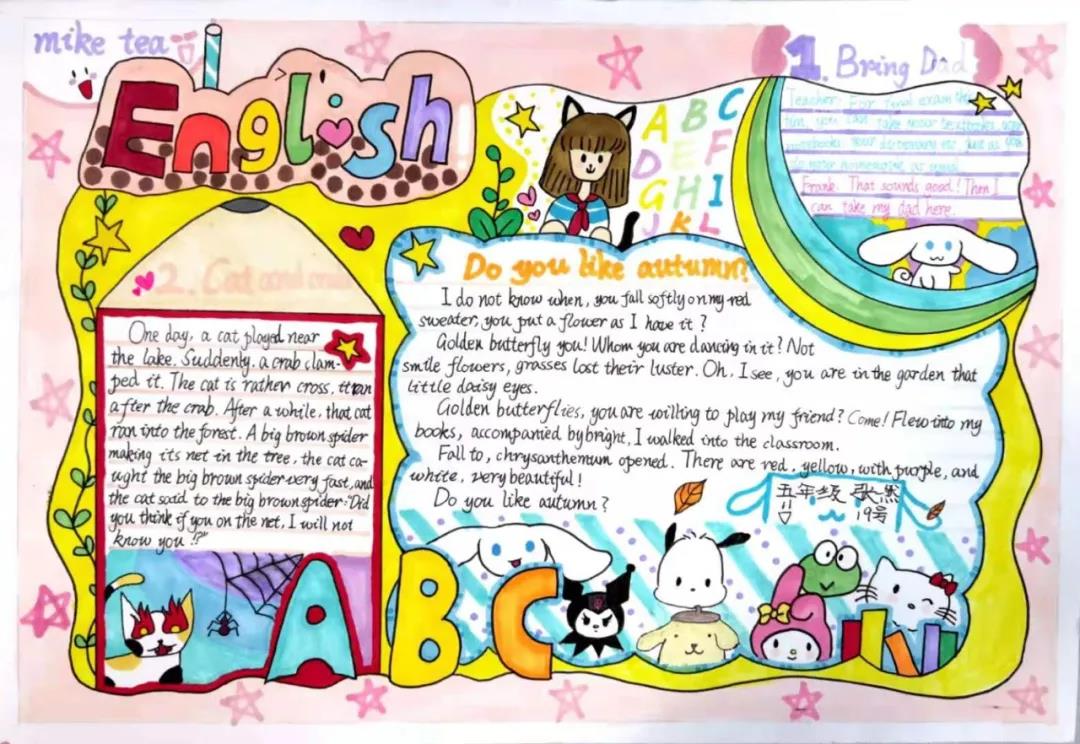 mike tea
English
1. Bring Dad
Teacher: For final exam this
tim, you can take your textbooks, your
notebooks your dictionary etc, just as
as usual
Frank: That sounds good! Then I
can take my dad here.
A B C
D E F
G H I
J K L
2. Cat and
One day, a cat played near
the lake. Suddenly, a crab clam-
ped it. The cat is rather cross, it ran
after the crab. After a while, that cat
ran into the forest. A big brown spider
making its net in the tree, the cat ca-
ught the big brown spider very fast, and
the cat said to the big brown spider: "Did
you think if you on the net, I will not
know you!?"
Do you like autumn?
I do not know when, you fall softly on my red
sweater, you put a flower as I have it?
Golden butterfly you! Whom you are dancing in it? Not
smile flowers, grasses lost their luster. Oh, I see, you are in the garden that
little daisy eyes.
Golden butterflies, you are willing to play my friend? Come! Flew into my
books, accompanied by bright, I walked into the classroom.
Fall to, chrysanthemum opened. There are red, yellow, with purple, and
white, very beautiful!
Do you like autumn?
五年级 张然
19号
A B C